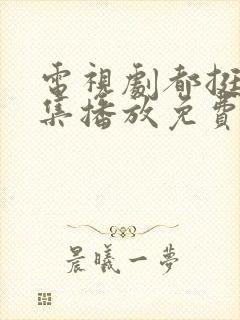 電視劇都挺
集播放免費
晨曦一夢